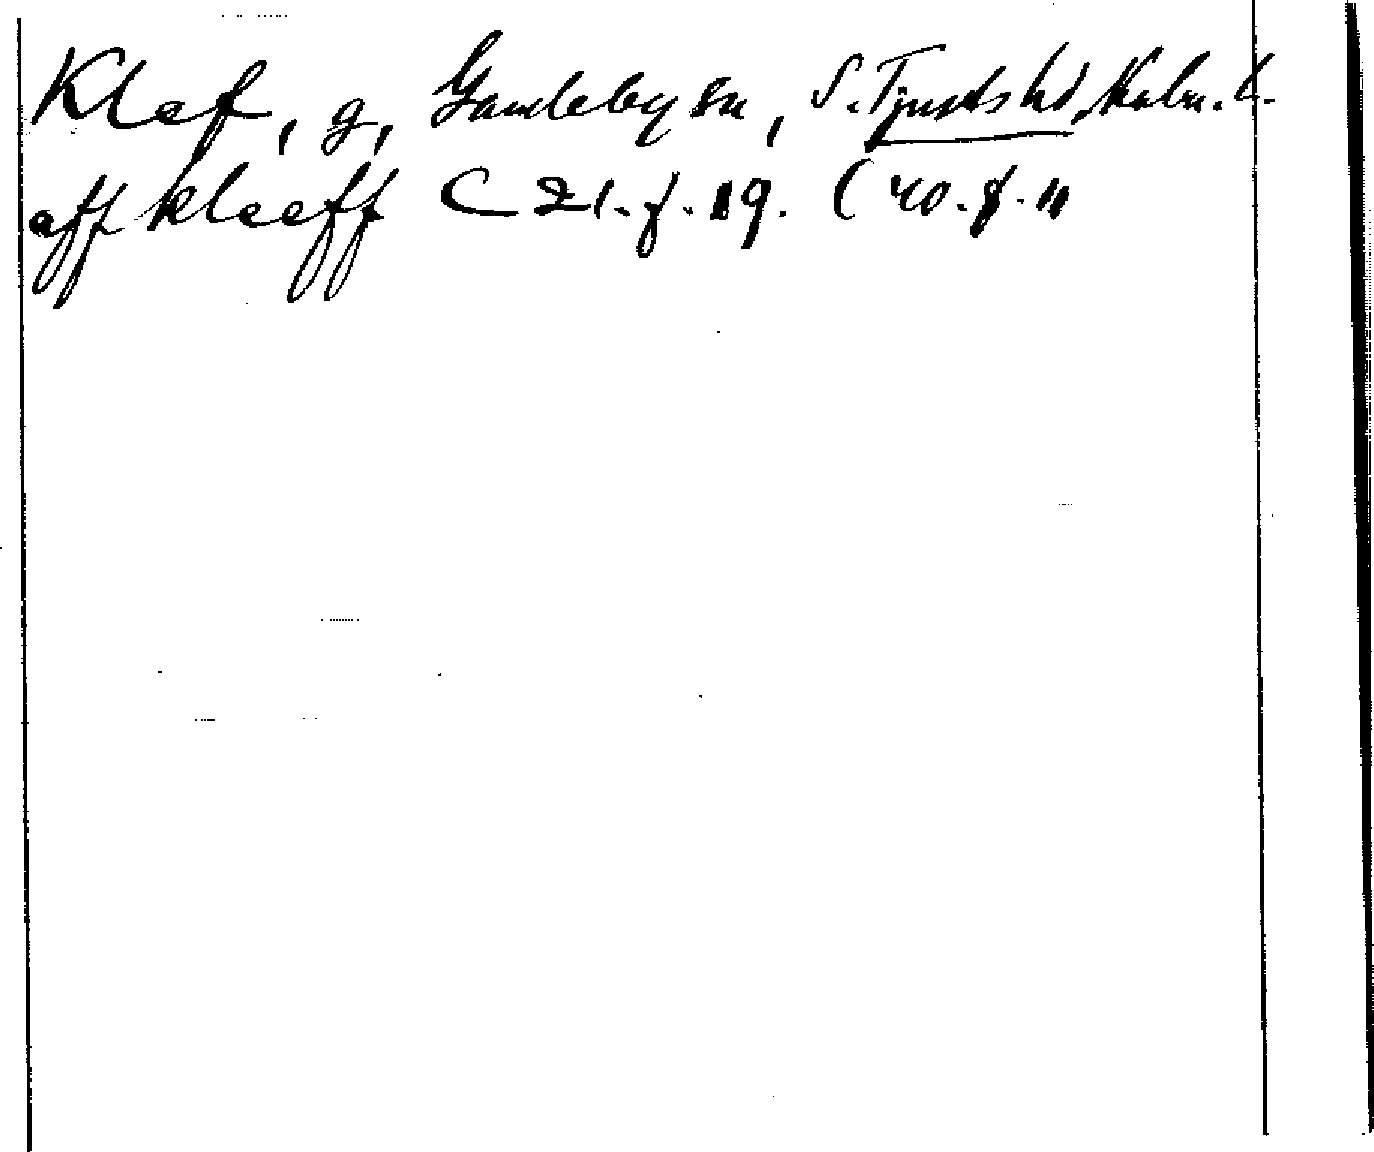 Klef, g, Gamleby sn, S. Tjusts hd, Kalm. l.
aff kleeff C 21. f. 19. C 40. f. 11